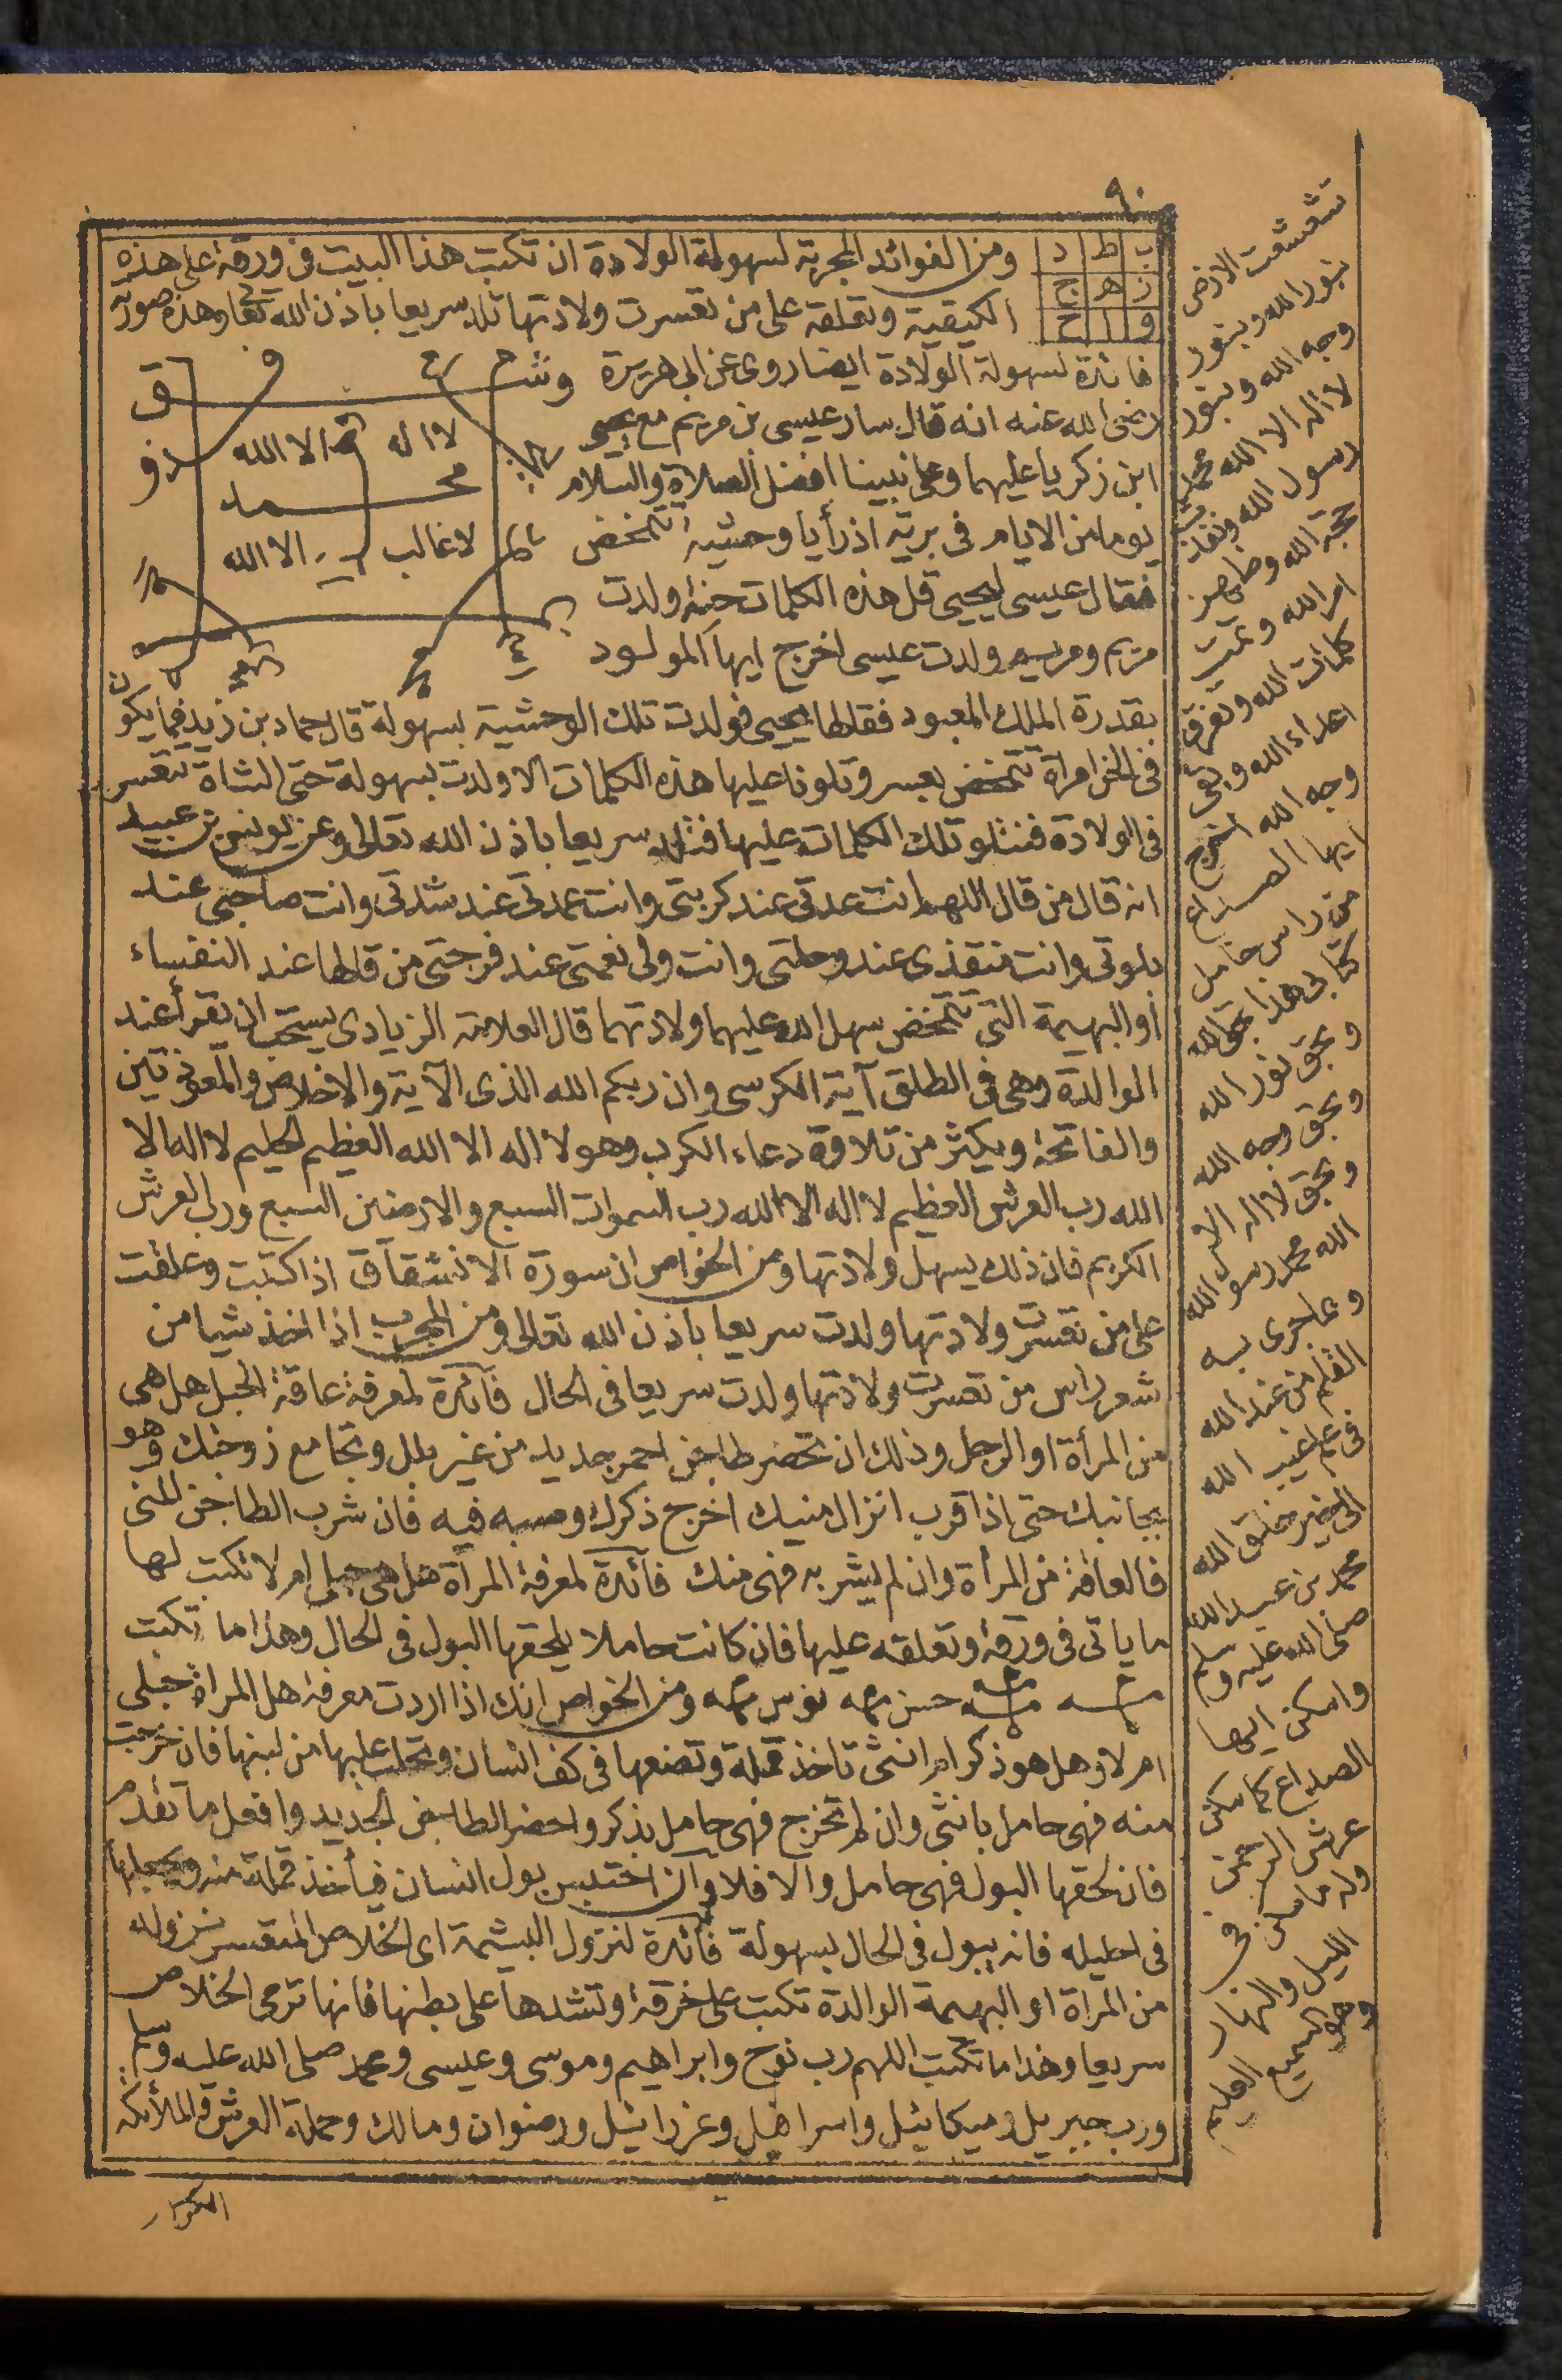 ٩٠
ب ط د
ز ه ج
و ا ح
ومن الفوائد المجربة لسهولة الولادة ان تكتب هذا البيت فى ورقة على هذه
الكيفية وتعلقه على من تعسرت ولادتها تلد سريعا باذن الله تعا وهذه صورته
فائدة لسهولة الولادة ايضا روى عن ابى هريرة
رضى الله عنه انه قال سار عيسى بن مريم مع يحيى
ابن زكريا عليهما وعلى نبينا افضل الصلاة والسلام
يوما من الايام فى برية اذ رأيا وحشية تتمخض
فقال عيسى ليحيى قل هذه الكلمات حنة ولدت
مريم ومريم ولدت عيسى اخرج ايها المولود
لا اله الا الله
محمد
لا غالب الا الله
بقدرة الملك المعبود فقالها يحيى فولدت تلك الوحشية بسهولة قال حماد بن زيد فما يكون
فى الحى امراة تتمخض بعسر وتلونا عليها هذه الكلمات الا ولدت بسهولة حتى الشاة تتعسر
فى الولادة فنتلو تلك الكلمات عليها فتلد سريعا باذن الله تعالى وعن يونس بن عبيد
انه قال من قال اللهم انت عدتى عند كربتى وانت عمدتى عند شدتى وانت صاحبى عند
بلوتى وانت منقذى عند وحلتى وانت ولى نعمتى عند فرجتى من قالها عند النفساء
أو البهيمة التى تتمخض سهل الله عليهما ولادتهما قال العلامة الزيادى يستحب ان يقرأ عند
الوالدة وهى فى الطلق آية الكرسى وان ربكم الله الذى الآية والاخلاص والمعوذتين
والفاتحة ويكثر من تلاوة دعاء الكرب وهو لا اله الا الله العظيم الحليم لا اله الا
الله رب العرش العظيم لا اله الا الله رب السموات السبع والارضين السبع ورب العرش
الكريم فان ذلك يسهل ولادتها ومن الخواص ان سورة الانشقاق اذا كتبت وعلقت
على من تعسرت ولادتها ولدت سريعا باذن الله تعالى ومن المجرب اذا اخذ شيا من
شعر راس من تعسرت ولادتها ولدت سريعا فى الحال فائدة لمعرفة عاقة الحبل هل هى
من المرأة او الرجل وذلك ان تحضر طاجن احمر جديد من غير بلل وتجامع زوجتك وهو
بجانبك حتى اذا قرب انزال منيك اخرج ذكرك وصبه فيه فان شرب الطاجن المنى
فالعاقة من المرأة وان لم يشربه فهى منك فائدة لمعرفة المرأة هل هى حبلى ام لا تكتب لها
ما ياتى فى ورقة وتعلقه عليها فان كانت حاملا يلحقها البول فى الحال وهذا ما تكتب
ومن الخواص انك اذا اردت معرفة هل المراة حبلى
ام لا وهل هو ذكر ام انثى تاخذ قملة وتضعها فى كف انسان وتحلب عليها من لبنها فان خرجت
منه فهى حامل بانثى وان لم تخرج فهى حامل بذكر واحضر الطاجن الجديد وافعل ما تقدم
فان لحقها البول فهى حامل والا فلا وان احتبس بول انسان فيأخذ قملة منه ويجعلها
فى احليله فانه يبول فى الحال بسهولة فائدة لنزول البشيمة اى الخلاص المتعسر نزوله
من المراة او البهيمة الوالدة تكتب على خرقة وتشدها على بطنها فانها ترمى الخلاص
سريعا وهذا ما تكتب اللهم رب نوح وابراهيم وموسى وعيسى ومحمد صلى الله عليه وسلم
ورب جبريل وميكائيل واسرافيل وعزرائيل ورضوان ومالك وحملة العرش والملائكة
تشعشعت الارض
بنور الله وبنور
وجه الله وبنور
لا اله الا الله محمد
رسول الله ونفذت
حجة الله وظهر
امر الله وتمت
كلمات الله وتفرق
اعداء الله وبقى
وجه الله اخرج
ايها الصداع
من راس حامل
كتابى هذا بحق الله
وبحق نور الله
وبحق وجه الله
وبحق لا اله الا
الله محمد رسول الله
وبما جرى به
القلم من عند الله
فى علم غيب الله
الى خير خلق الله
محمد بن عبد الله
صلى الله عليه وسلم
واسكن ايها
الصداع كما سكن
عرش الرحمن
وله ما سكن فى
الليل والنهار
وهو السميع العليم